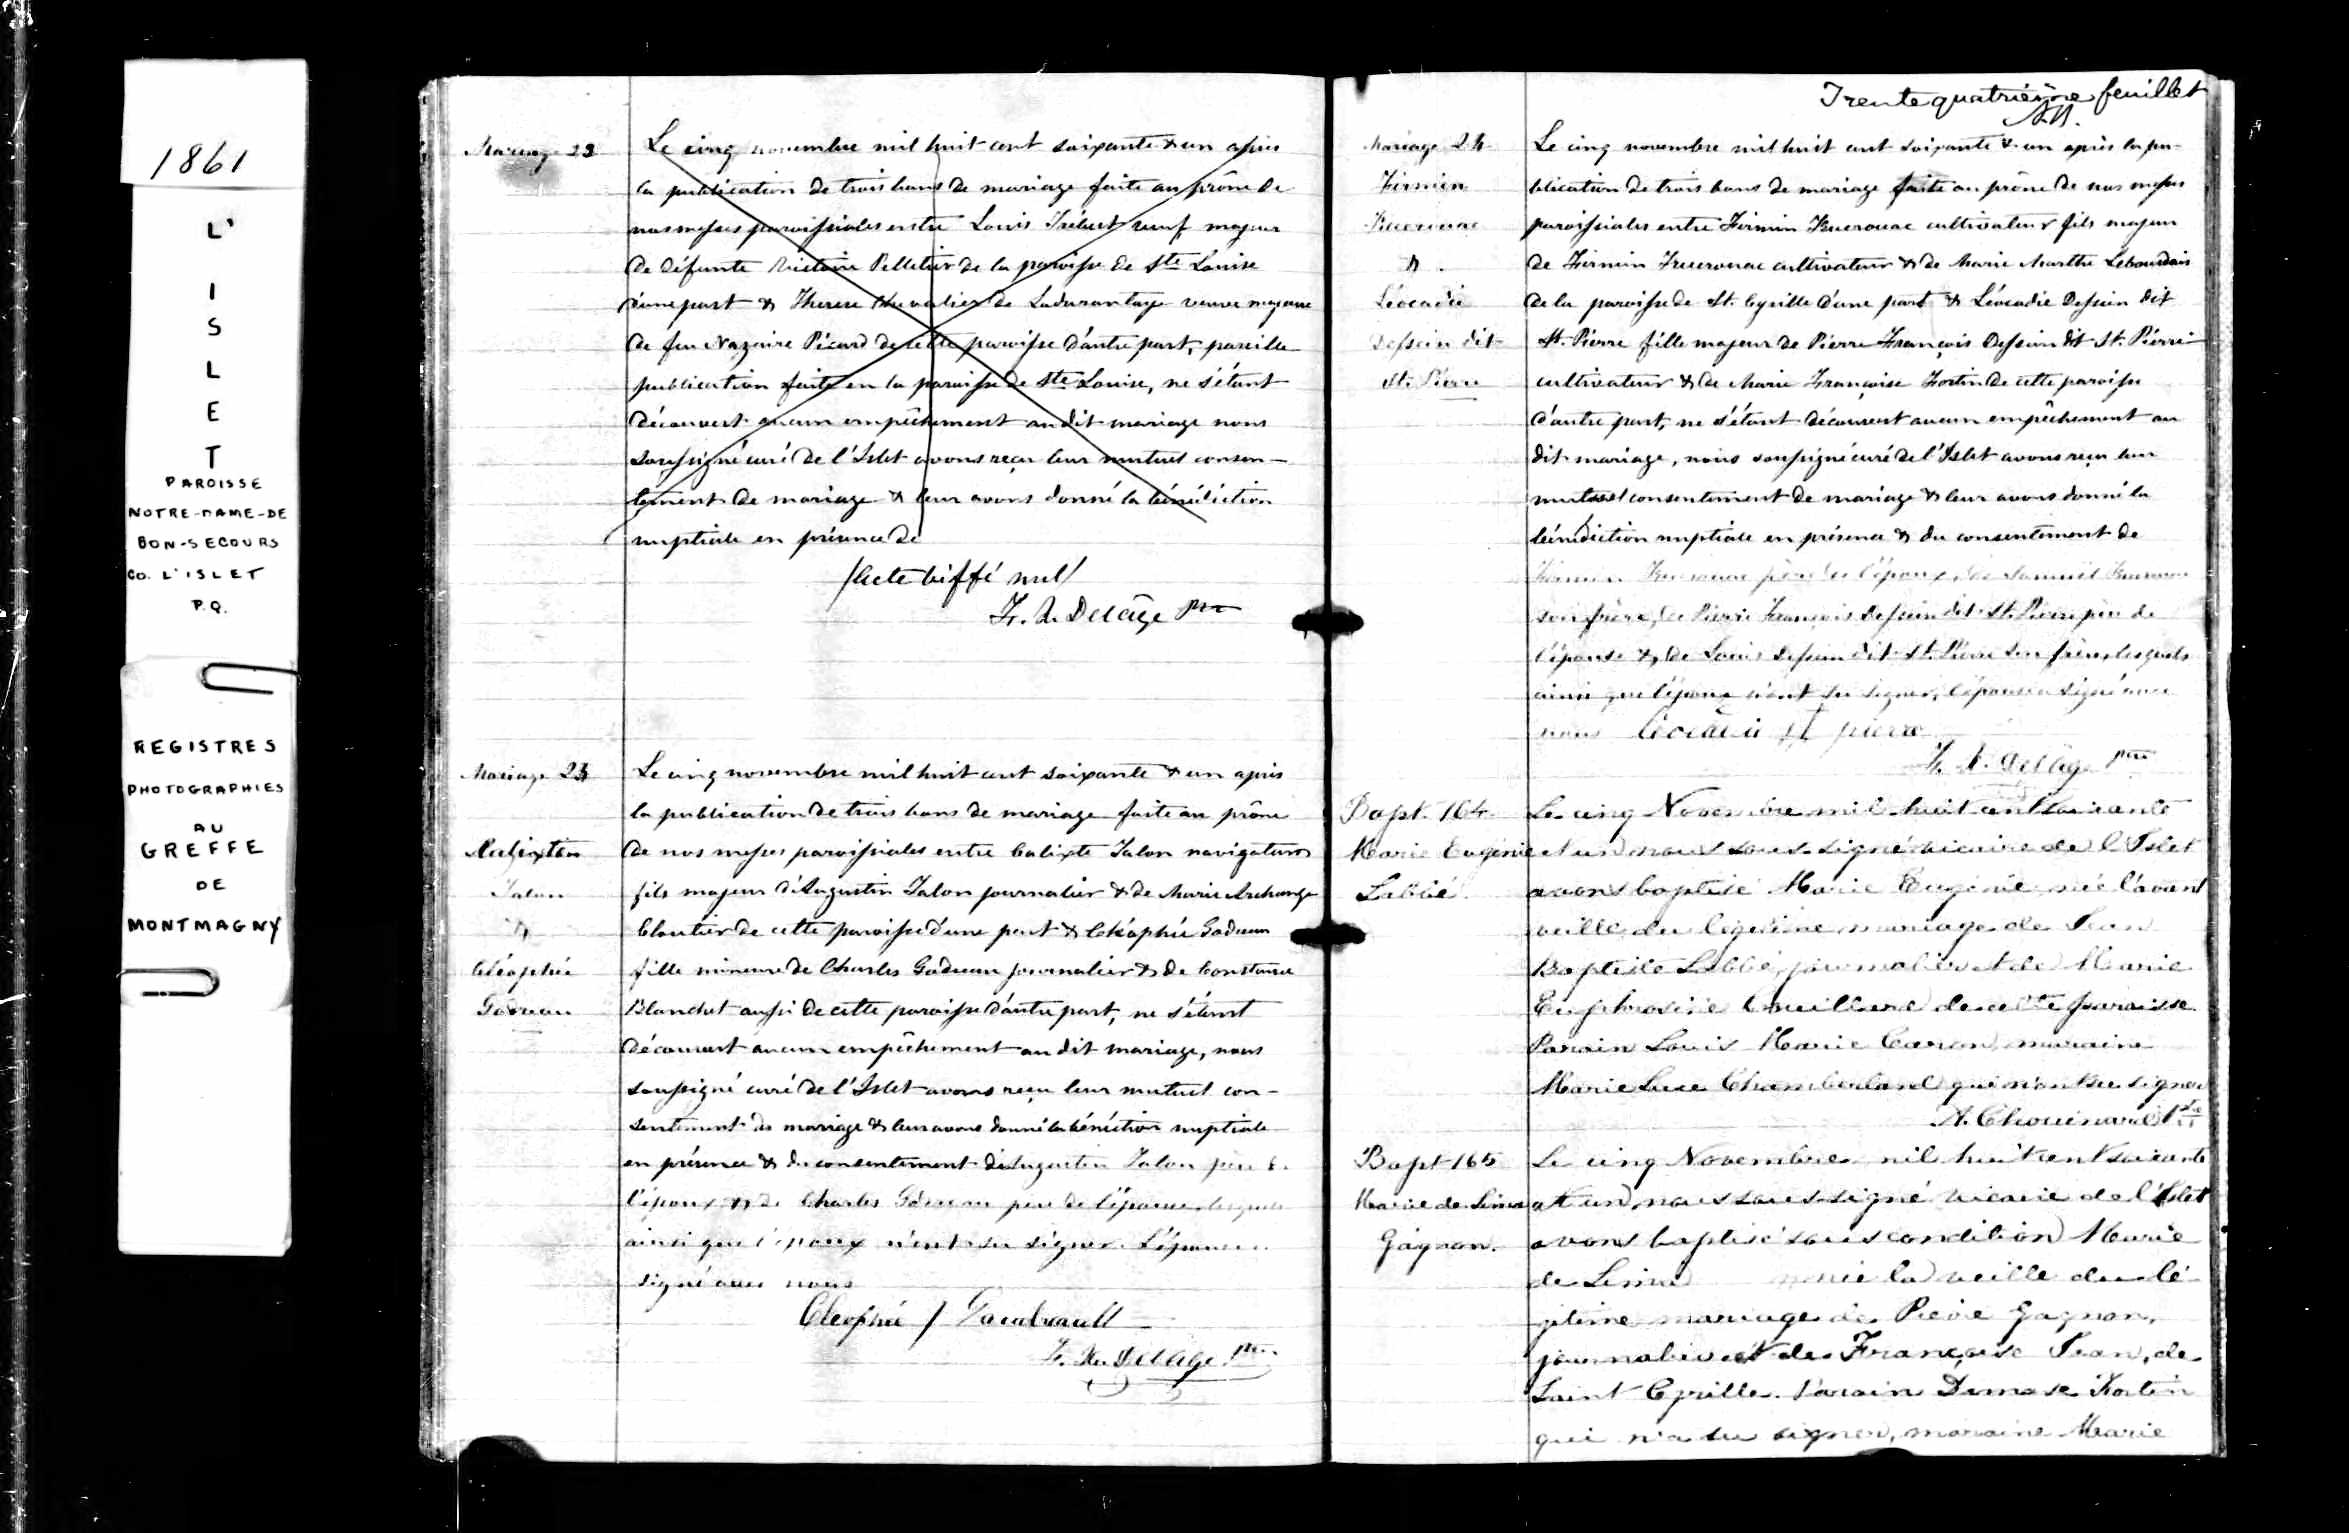 1861
L'
I
S
L
E
T
PAROISSE
NOTRE-DAME-DE
BON-SECOURS
CO. L'ISLET
P.Q.
REGISTRES
PHOTOGRAPHIES
AU
GREFFE
DE
MONTMAGNY
Mariage 23
Le cinq novembre mil huit cent soixante & un après
la publication de trois bans de mariage faite au prône de
nos messes paroissiales entre Louis veuf majeur
de défunte Pelletier de la paroisse de Ste Louise
d'une part & Therese Chevalier de Ladurantaye veuve majeure
de feu Nazaire Picard de cette paroisse d'autre part, pareille
publication faite en la paroisse de Ste Louise, ne s'étant
découvert aucun empêchement au dit mariage nous
soussigné curé de l'Islet avons reçu leur mutuel consen-
tement de mariage & leur avons donné la bénédiction
nuptiale en présence de
/Acte biffé nul/
F. X. Delâge Ptre
Mariage 23
Calixte
Talon
&
Cléophée
Godreau
Le cinq novembre mil huit cent soixante & un après
la publication de trois bans de mariage faite au prône
de nos messes paroissiales entre Calixte Talon navigateur
fils majeur d'Augustin Talon journalier & de Marie Archange
Cloutier de cette paroisse d'une part & Cléophée Godreau
fille mineure de Charles Godreau journalier & de Constance
Blanchet aussi de cette paroisse d'autre part, ne s'étant
découvert aucun empêchement au dit mariage, nous
soussigné curé de l'Islet avons reçu leur mutuel con-
sentement de mariage & leur avons donné la bénédiction nuptiale
en présence & du consentement d'Augustin Talon père de
l'époux & de Charles Godreau père de l'épouse lesquels
ainsi que l'époux n'ont su signer. L'épouse a
signé avec nous
Cleophée Gaudreault
F. X. Delâge Ptre
Trente quatrième feuillet
Mariage 24
Firmin
Kuerouac
&
Léocadie
Dessein dit
St. Pierre
Le cinq novembre mil huit cent soixante & un après la pu-
blication de trois bans de mariage faite au prône de nos messes
paroissiales entre Firmin Kuerouac cultivateur fils majeur
de Firmin Kuerouac cultivateur & de Marie Marthe Lebourdais
de la paroisse de St. Cyrille d'une part & Léocadie Dessein dit
St. Pierre fille majeur de Pierre François Dessein dit St. Pierre
cultivateur & de Marie Françoise Fortin de cette paroisse
d'autre part, ne s'étant découvert aucun empêchement au
dit mariage, nous soussigné curé de l'Islet avons reçu leur
mutuel consentement de mariage & leur avons donné la
bénédiction nuptiale en présence & du consentement de
Firmin Kuerouac père de l'époux, de Samuël Kuerouac
son frère, de Pierre François Dessein dit St. Pierre père de
l'épouse & de Louis Dessein dit St. Pierre son frère, lesquels
ainsi que l'époux n'ont su signer, l'épouse a signé avec
nous Léocadie St pierre
F. X. Delâge Ptre
Bapt. 164
Marie Eugénie
Labbé.
Le cinq Novembre mil huit cent soixante
et un nous soussigné vicaire de l'Islet
avons baptisé Marie Eugénie née l'avant
veille du légitime mariage de Jean
Baptiste Labbé, journalier et de Marie
Euphrosine Couillard de cette paroisse
Parain Louis Marie Caron, maraine
Marie Luce Chamberland qui n'ont su signer
A. Chouinard Ptre
Bapt 165
Marie de Lima
Gagnon.
Le cinq Novembre mil huit cent soixante
et un, nous soussigné vicaire de l'Islet
avons baptisé sous condition Marie
de Lima née la veille du lé-
gitime mariage de Pierre Gagnon,
journalier et de Françoise Jean, de
Saint Cyrille. Parain Damase Fortin
qui n'a su signer, maraine Marie